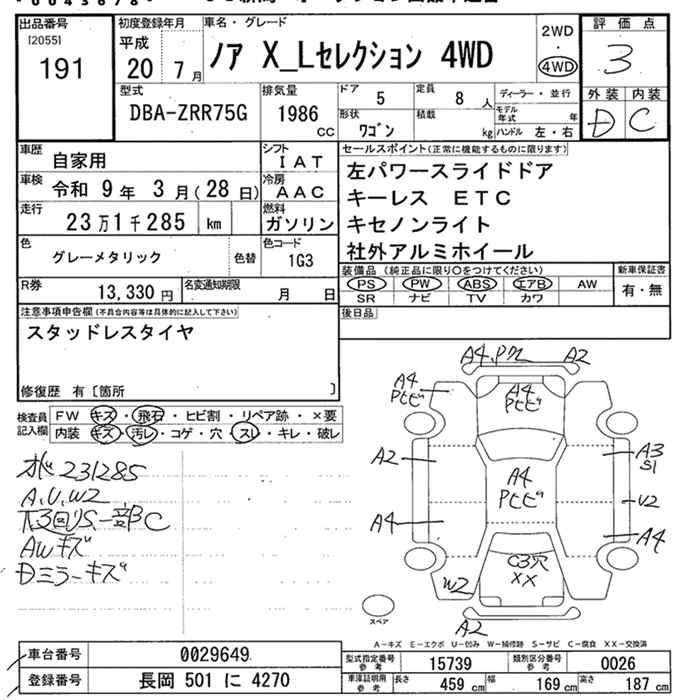 出品番号
[2055]
191
初度登録年月
平成
20 7月
車名・グレード
ノア X_Lセレクション 4WD
2WD
・
4WD
評価点
3
外装 内装
D C
型式
DBA-ZRR75G
排気量
1986
cc
ドア
5
定員
8 人
形状
ワゴン
積載
kg
ディーラー・並行
モデル年式 年
ハンドル 左・右
車歴
自家用
シフト
IAT
車検
令和 9年 3月(28日)
冷房
AAC
走行
23万1千285 km
燃料
ガソリン
色
グレーメタリック
色替
色コード
1G3
R券
13,330円
名変通知期限
月 日
セールスポイント(正常に機能するものに限ります)
左パワースライドドア
キーレス ETC
キセノンライト
社外アルミホイール
装備品(純正品に限り○をつけてください)
PS PW ABS エアB AW
SR ナビ TV カワ
新車保証書
有・無
後日品
注意事項申告欄(不具合内容等は具体的に記入して下さい)
スタッドレスタイヤ
修復歴 有〔箇所 〕
検査員
記入欄
FW キズ・飛石・ヒビ割・リペア跡・×要
内装 キズ・汚レ・コゲ・穴・スレ・キレ・破レ
231285
A,U,W2
下回りS一部C
AWキズ
Dミラーキズ
A4,Pワレ A2
A4
Pヒビ
A4
Pヒビ
A2
A3
S1
A4
Pヒビ
U2
A4
A4
C3穴
XX
W2
A2
スペア
A−キズ E−エクボ U−凹み W−補修跡 S−サビ C−腐食 XX−交換済
車台番号
0029649
登録番号
長岡 501 に 4270
型式指定番号
参考
15739
類別区分番号
参考
0026
車庫証明用
参考
長さ
459 cm
幅
169 cm
高さ
187 cm